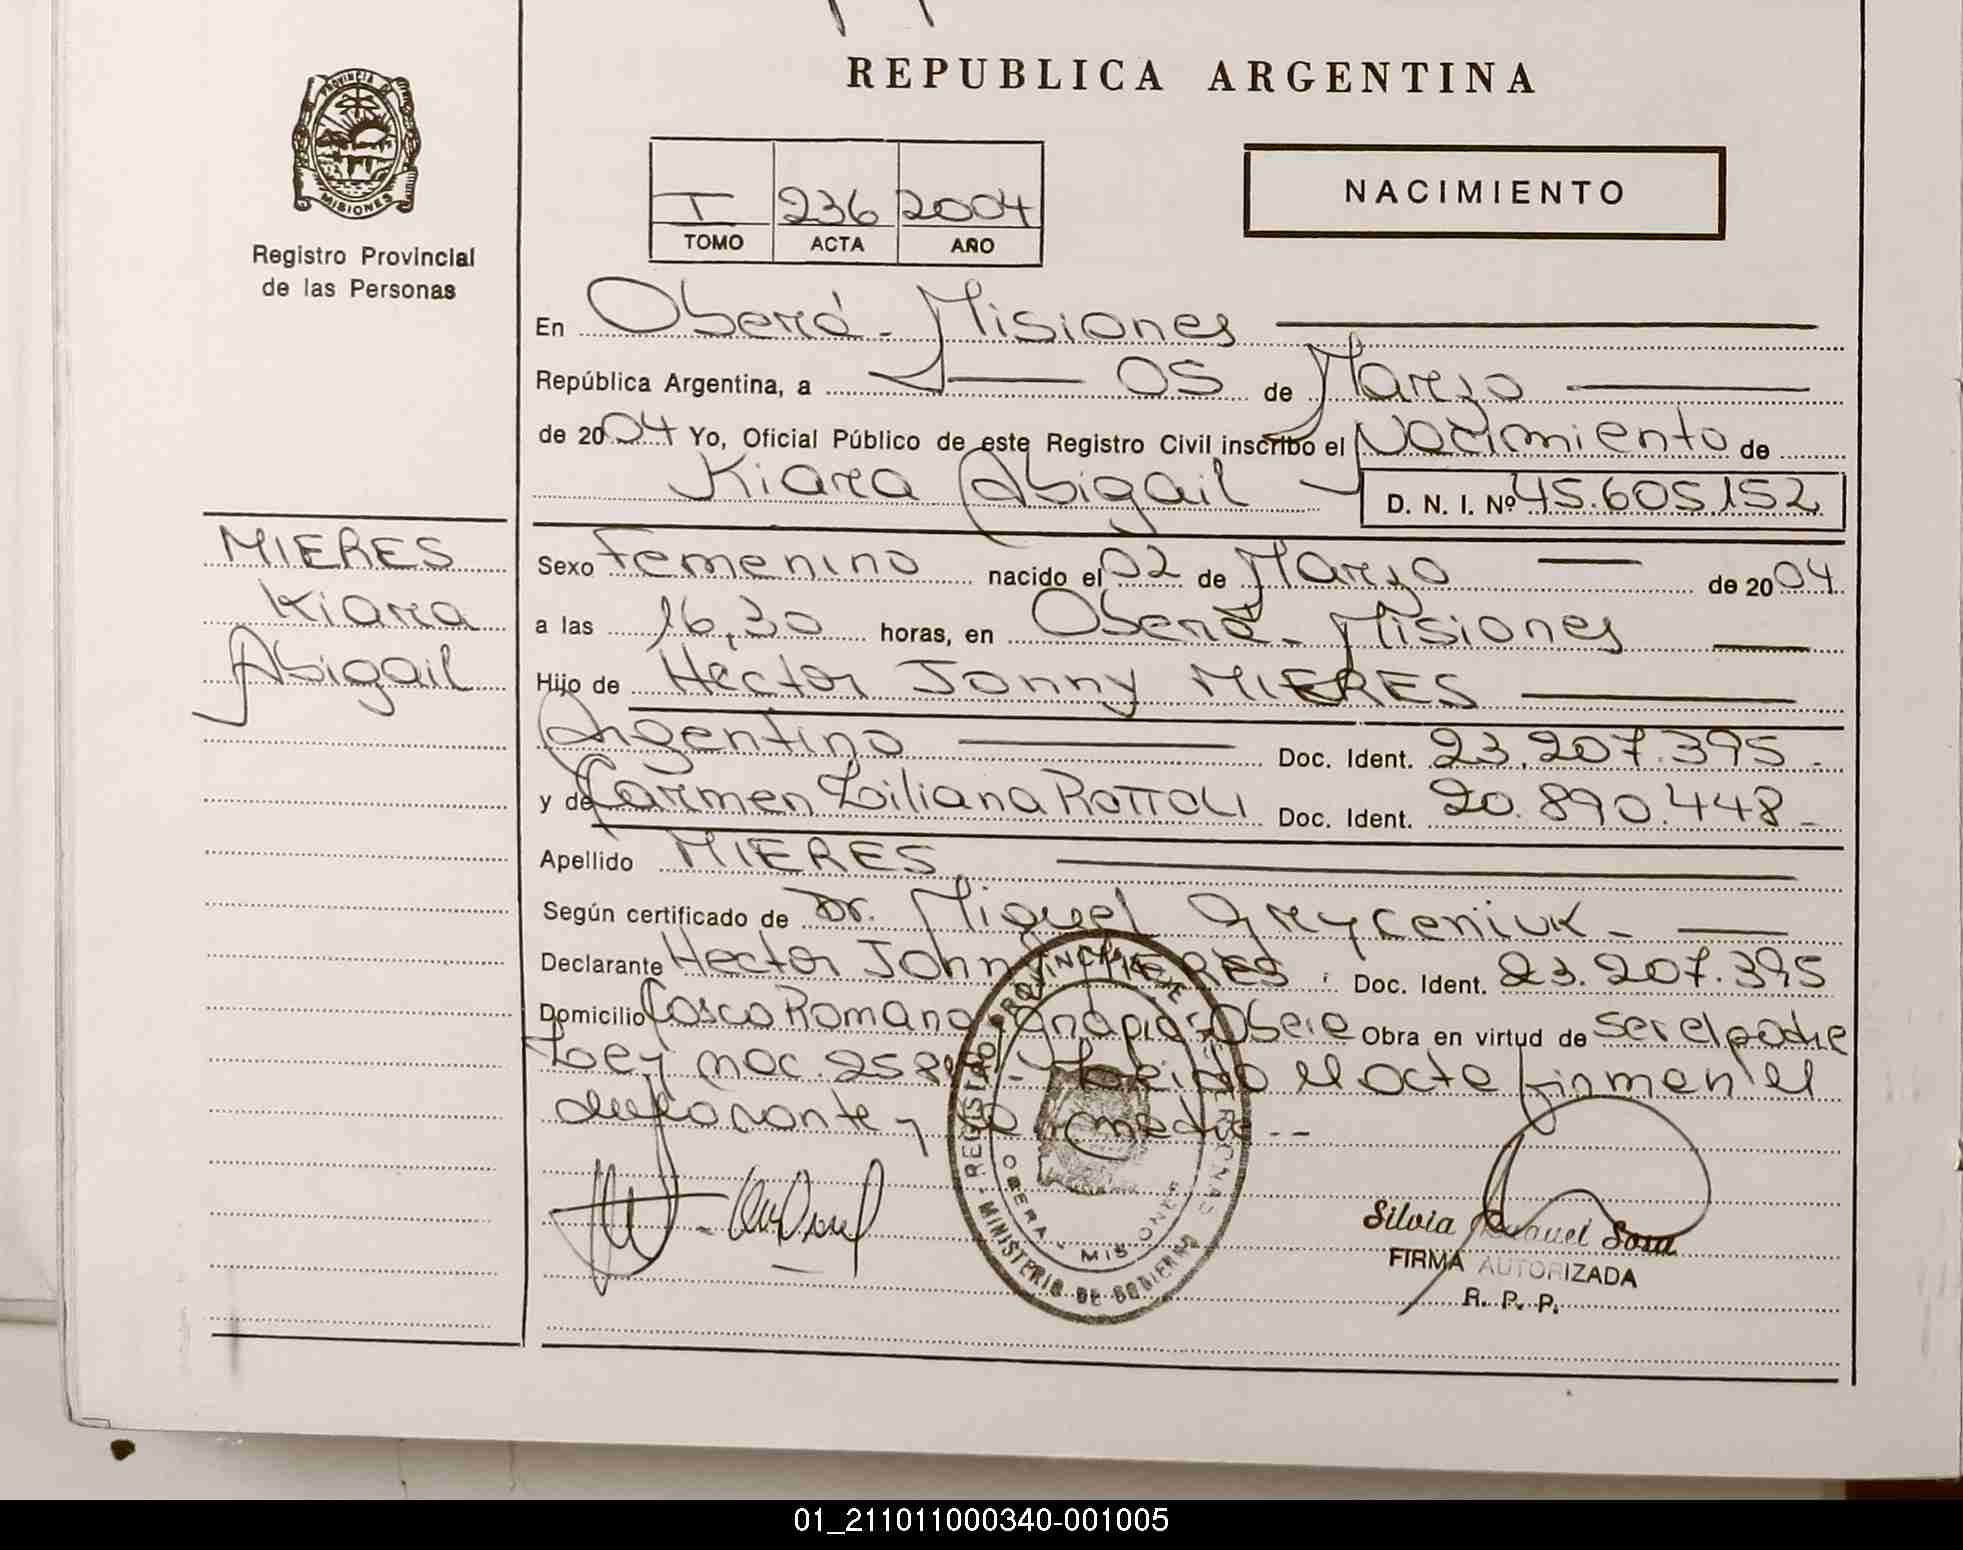 PROVINCIA DE
MISIONES
Registro Provincial
de las Personas
MIERES
Kiara
Abigail
REPUBLICA ARGENTINA
I 236 2004
TOMO ACTA AÑO
NACIMIENTO
En Oberá - Misiones
República Argentina, a 05 de Marzo
de 2004 Yo, Oficial Público de este Registro Civil inscribo el Nacimiento de
Kiara Abigail D. N. I. Nº 45.605.152
Sexo Femenino nacido el 02 de Marzo de 2004
a las 16,30 horas, en Oberá - Misiones
Hijo de Hector Jonny MIERES
Argentino Doc. Ident. 23.207.395 -
y de Carmen Liliana ROTTOLI Doc. Ident. 20.890.448 -
Apellido MIERES
Según certificado de Dr. Miguel Gryceniuk -
Declarante Hector Johnny MIERES Doc. Ident. 23.207.395
Domicilio Casco Romano Oberá Obra en virtud de ser el padre
Ley nac. Leído el acta firman el
declarante y la madre --
REGISTRO PROVINCIAL DE PERSONAS
OBERA - MISIONES
MINISTERIO DE GOBIERNO
Silvia Raquel Sosa
FIRMA AUTORIZADA
R. P. P.
01_211011000340-001005